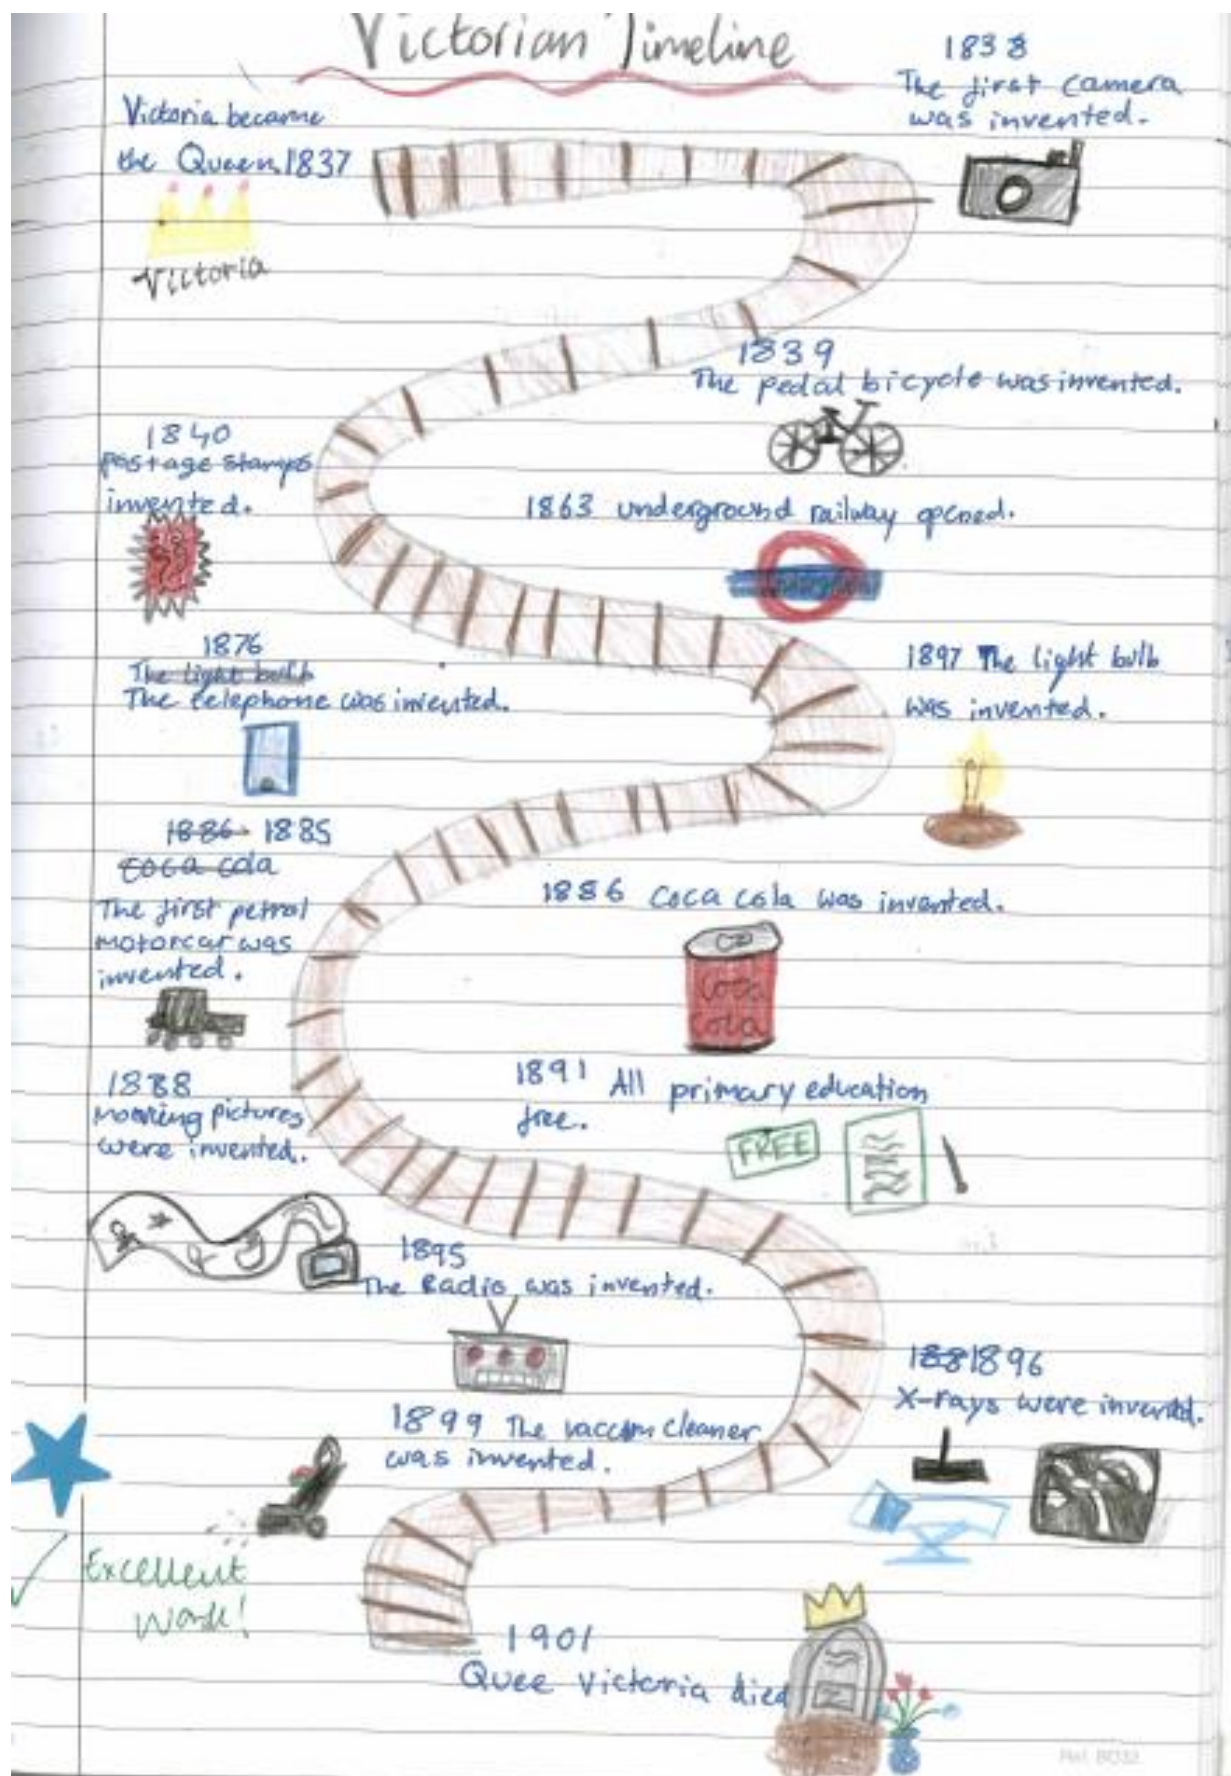 Victorian Timeline
Victoria became
the Queen 1837
Victoria
1838
The first camera
was invented.
1839
The pedal bicycle was invented.
1840
Postage stamps
invented.
1863 underground railway opened.
1876
The light bulb
The telephone was invented.
1897 The light bulb
was invented.
1886 1885
Coca cola
The first petrol
motorcar was
invented.
1886 Coca cola was invented.
Coca
Cola
1888
Mooving pictures
were invented.
1891 All primary education
free.
FREE
1895
The Radio was invented.
1881896
X-rays were invented.
1899 The vaccum cleaner
was invented.
Excellent
Work!
1901
Quee Victoria died
Ref. 8032